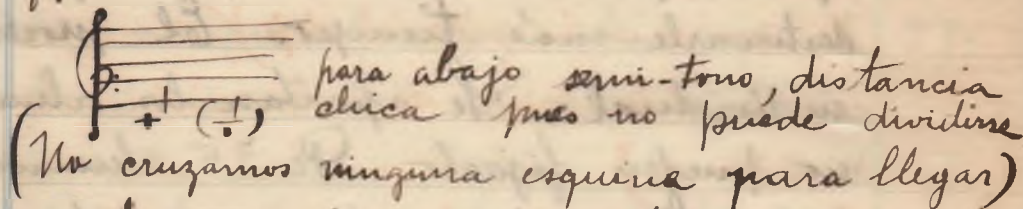 para abajo semi-tono, distancia
chica pues no puede dividirse
(No cruzamos ninguna esquina para llegar)